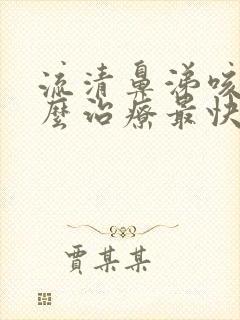 流清鼻涕咳
麼治療最快
賈某某